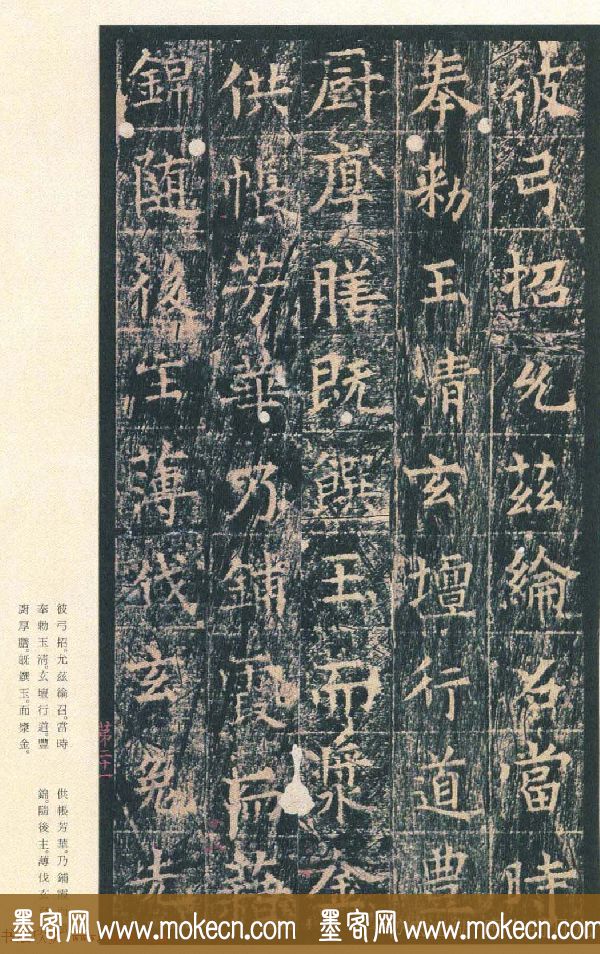 彼弓招尤茲綸召當時
奉勑玉清玄壇行道豊
厨厚膳既饌玉而漿金
供帳芳華乃鋪霞而藉
錦随後主薄伐玄兔先
彼弓招。尤茲綸召。當時
奉勑玉清。玄壇行道。豐
厨厚膳。旣饌玉。而漿金。
供帳芳華。乃鋪霞
錦。隨後主。薄伐玄
第二十一
墨客网 www.mokecn.com 墨客网 www.mokecn.com